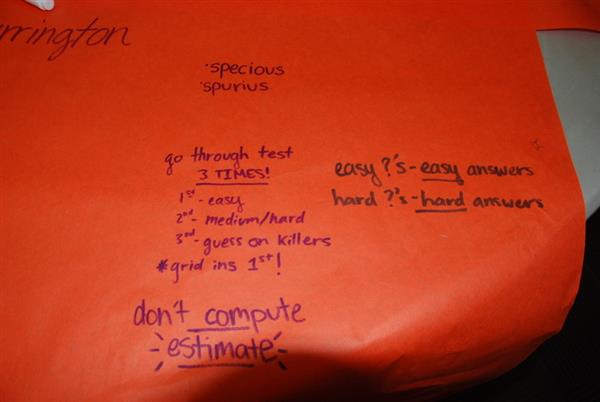 rrington
·specious
·spurius
go through test
3 TIMES!
1st - easy
2nd - medium/hard
3rd - guess on killers
*grid ins 1st!
don't compute
estimate
easy ?'s - easy answers
hard ?'s - hard answers